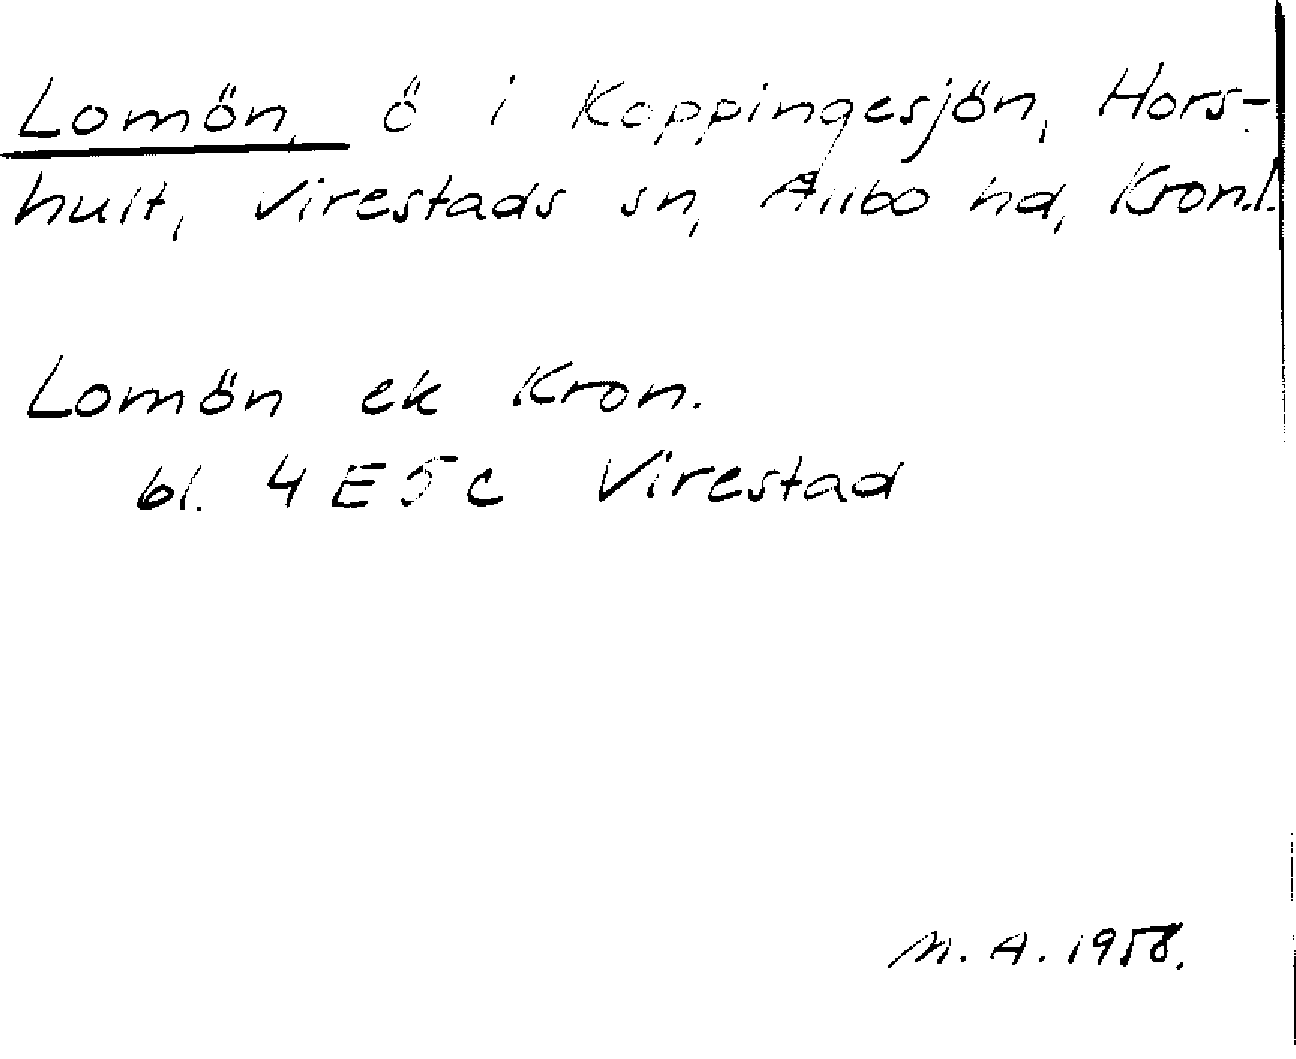 Lomön, ö i Koppingesjön, Hors-
hult, Virestads sn, Allbo hd, Kron.l.
Lomön ek Kron.
bl. 4 E 5 c Virestad
M. A. 1958.